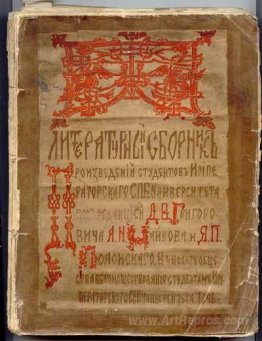 ЛИТЕРАТУРНЫЙ СБОРНИКЪ
ПРОИЗВЕДЕНІЙ СТУДЕНТОВЪ ИМПЕ
РАТОРСКАГО С.П.Б. УНИВЕРСИТЕТА
ПОДЪ РЕДАКЦІЕЙ Д.В. ГРИГОРО
ВИЧА А.Н. МАЙКОВА И Я.П.
ПОЛОНСКАГО. ВЪ ПОЛЬЗУ ОБЩЕ
СТВА ВСПОМОЩЕСТВОВАНІЯ СТУДЕНТАМЪ ИМ
ПЕРАТОРСКАГО С.П.Б. УНИВЕРСИТЕТА
www.ArtRepros.com